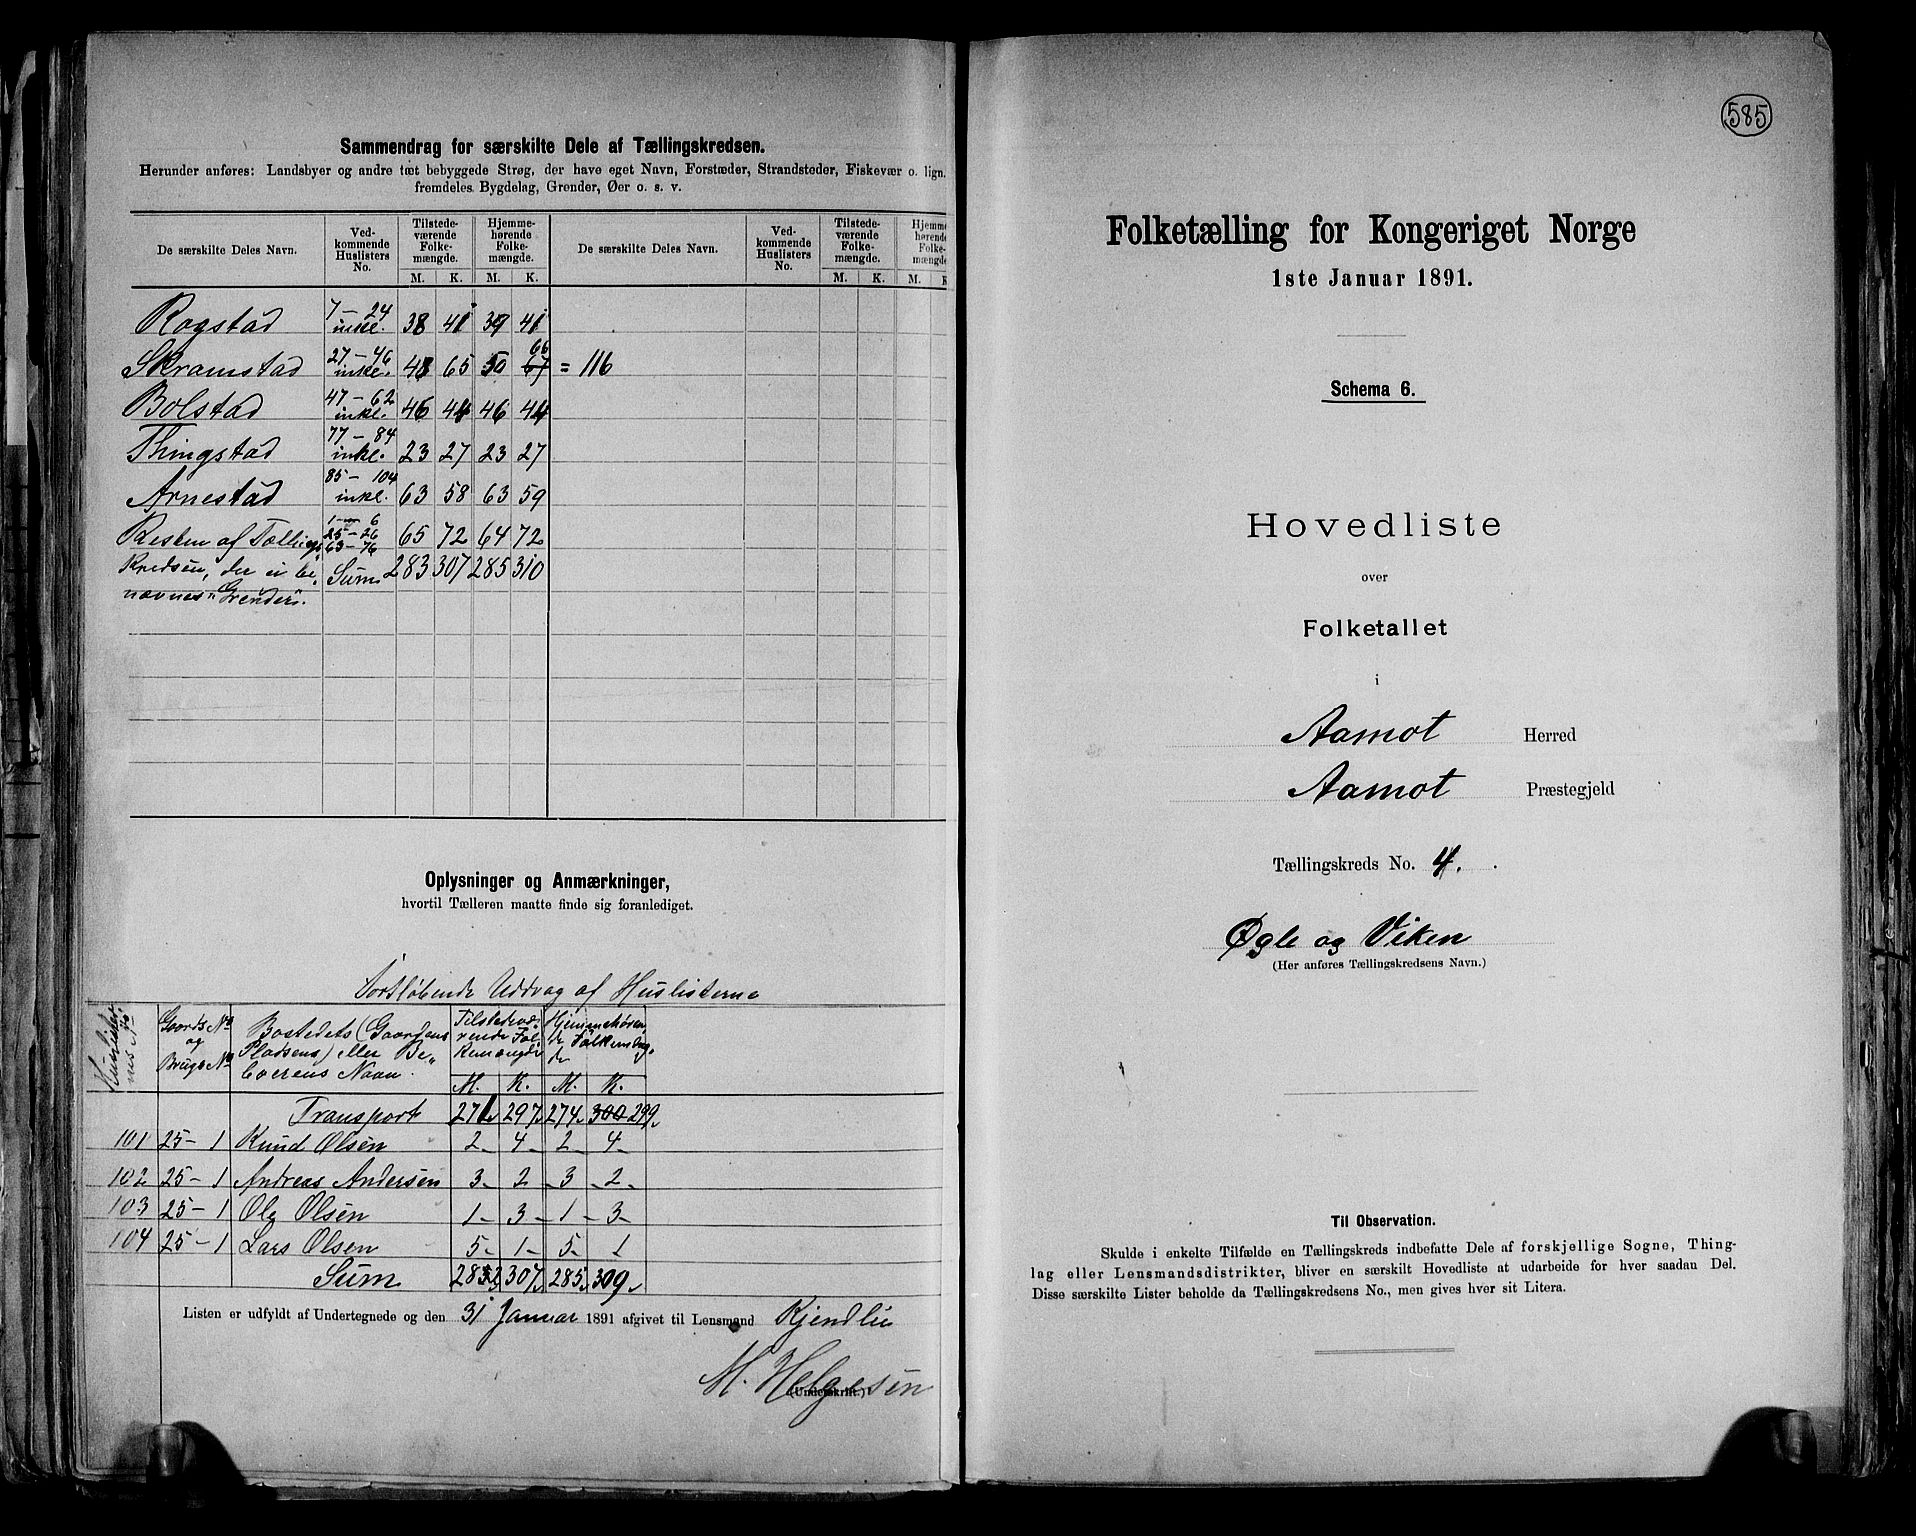 Sammendrag for særskilte Dele af Tællingskredsen.
Herunder anføres: Landsbyer og andre tæt bebyggede Strøg, der have eget Navn, Forstæder, Strandsteder, Fiskevær o. lign.
fremdeles Bygdelag, Grender, Øer o. s. v.
De særskilte Deles Navn. Ved-kommende Huslisters No. Tilstede-værende Folke-mængde. Hjemme-hørende Folke-mængde. De særskilte Deles Navn. Ved-kommende Huslisters No. Tilstede-værende Folke-mængde. Hjemme-hørende Folke-mængde.
M. K. M. K. M. K. M. K.
Rogstad 7 – 24 inkl. 38 41 39 41
Skramstad 27 – 46 inkl. 48 65 50 67 66 = 116
Bolstad 47 – 62 inkl. 46 44 46 44
Thingstad 77 – 84 inkl. 23 27 23 27
Arnestad 85 – 104 inkl. 63 58 63 59
Resten af Tællings 1 – 6 25 – 26 63 – 76 65 72 64 72
Kredsen, der ei be- Sum 283 307 285 310
nævnes "Grender".
Oplysninger og Anmærkninger,
hvortil Tælleren maatte finde sig foranlediget.
Fortløbende Uddrag af Huslisterne
Huslister-nes No. Gaards No og Brugs No Bostedets (Gaardens Pladsens) eller Be-boerens Navn. Tilstedevæ-rende Fol-kemængde Hjemmehøren-de Folkemæng-de
M. K. M. K.
Transport 271 297 274 300 299
101 25 – 1 Knud Olsen 2 4 2 4
102 25 – 1 Andreas Andersen 3 2 3 2
103 25 – 1 Ole Olsen 1 3 1 3
104 25 – 1 Lars Olsen 5 1 5 1
Sum 283 307 285 309
Listen er udfyldt af Undertegnede og den 31 Januar 1891 afgivet til Lensmand Kjendlie
M. Helgesen
(Underskrift.)
585
Folketælling for Kongeriget Norge
1ste Januar 1891.
Schema 6.
Hovedliste
over
Folketallet
i
Aamot Herred
Aamot Præstegjeld
Tællingskreds No. 4.
Øgle og Viken
(Her anføres Tællingskredsens Navn.)
Til Observation.
Skulde i enkelte Tilfælde en Tællingskreds indbefatte Dele af forskjellige Sogne, Thing-
lag eller Lensmandsdistrikter, bliver en særskilt Hovedliste at udarbeide for hver saadan Del.
Disse særskilte Lister beholde da Tællingskredsens No., men gives hver sit Litera.